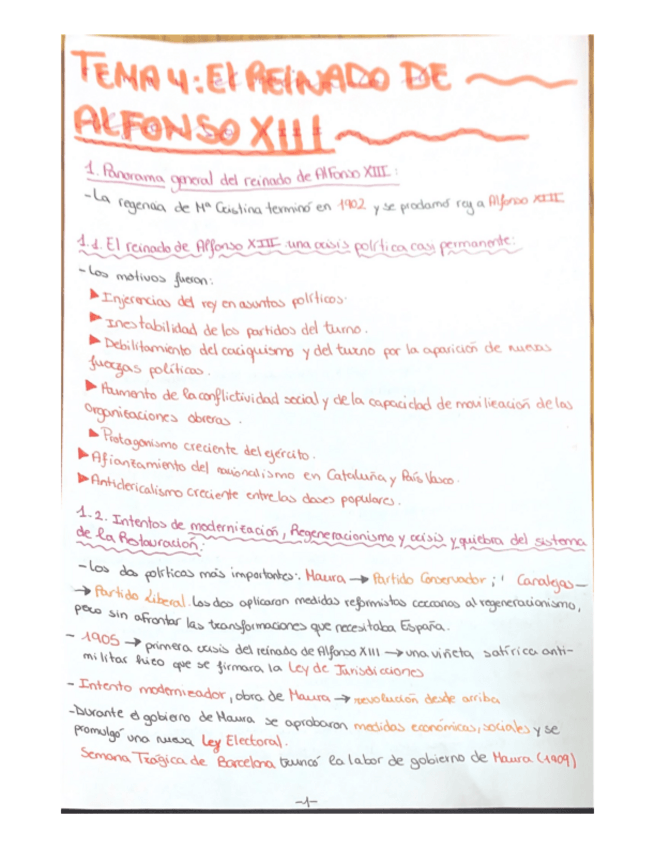 TEMA 4: El REINADO DE
ALFONSO XIII
1. Panorama general del reinado de Alfonso XIII:
-La regencia de Mª Cristina terminó en 1902 y se proclamó rey a Alfonso XIII
1.1. El reinado de Alfonso XIII: una crisis política casi permanente:
-Los motivos fueron:
▶ Injerencias del rey en asuntos políticos.
▶ Inestabilidad de los partidos del turno.
▶ Debilitamiento del caciquismo y del turno por la aparición de nuevas
fuerzas políticas.
▶ Aumento de la conflictividad social y de la capacidad de movilización de las
organizaciones obreras.
▶ Protagonismo creciente del ejército.
▶ Afianzamiento del nacionalismo en Cataluña y País Vasco.
▶ Anticlericalismo creciente entre las clases populares.
1.2. Intentos de modernización, Regeneracionismo y crisis y quiebra del sistema
de la Restauración:
-Los dos políticos más importantes: Maura → Partido Conservador ; Canalejas—
→ Partido Liberal. Los dos aplicaron medidas reformistas cercanos al regeneracionismo,
pero sin afrontar las transformaciones que necesitaba España.
- 1905 → primera crisis del reinado de Alfonso XIII → una viñeta satírica anti-
militar hizo que se firmara la Ley de Jurisdicciones
- Intento modernizador, obra de Maura → revolución desde arriba
-Durante el gobierno de Maura se aprobaron medidas económicas, sociales y se
promulgó una nueva Ley Electoral.
Semana Trágica de Barcelona truncó la labor de gobierno de Maura (1909)
-1-